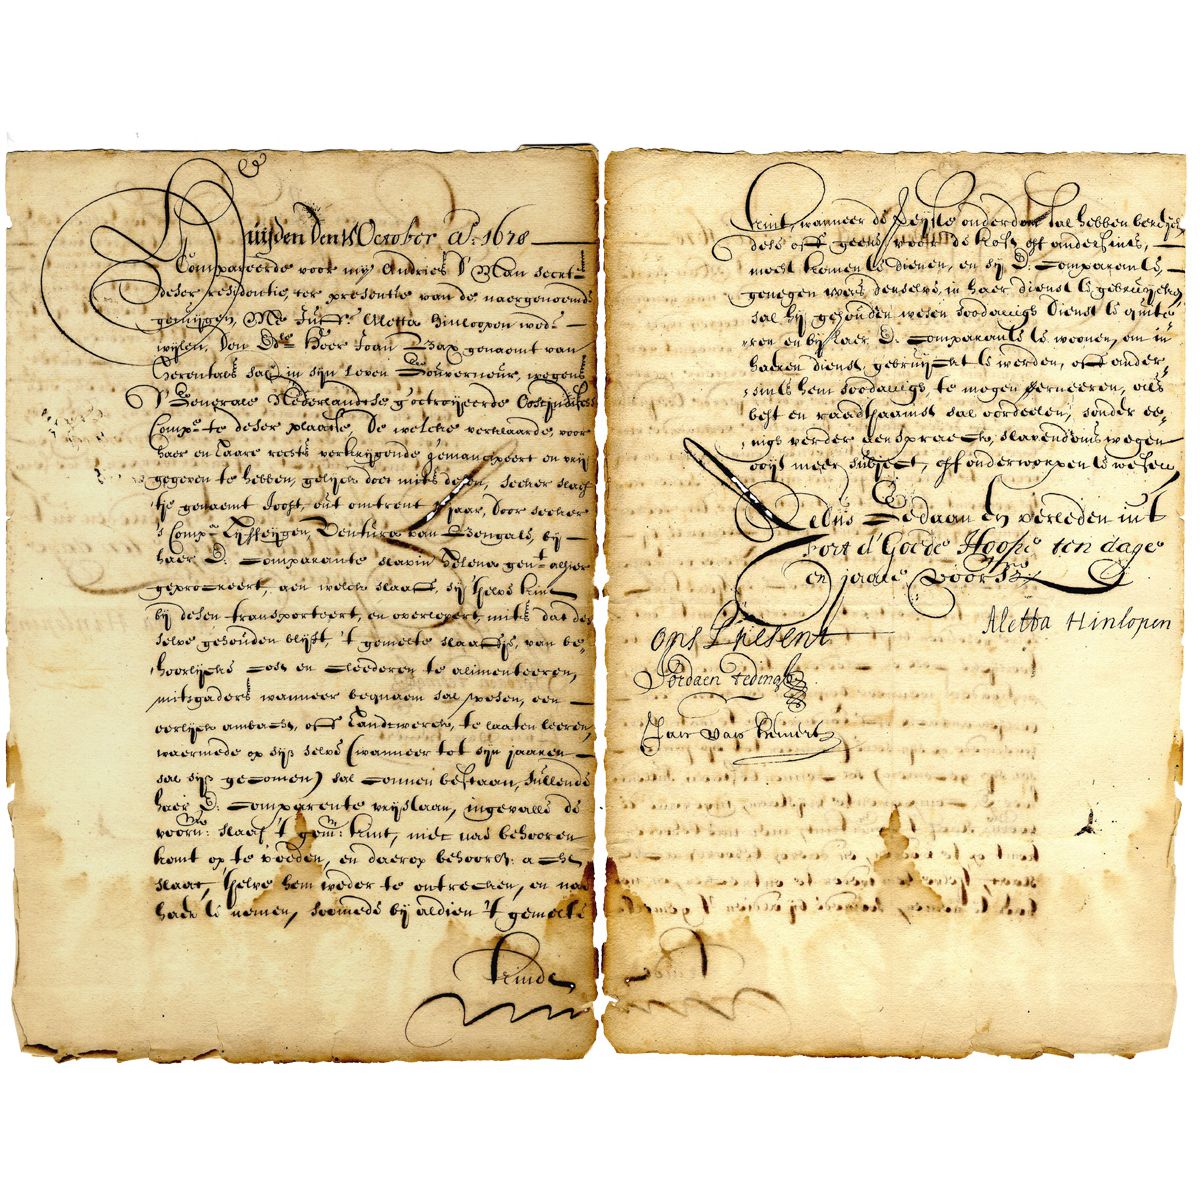 Huijden den 15 October Aº: 1678
Compareerde voor mij Andries d'Man secrts
deser residentie, ter presentie van de naergenoemde
getuijgen, Me Juffr. Aletta Hinlopen wede
wijlen, den Ede Heer Joan Bax genaemt van
Herentals salr in sijn Leven Gouverneur, wegens
d'Generale Nederlandtse g'octroijeerde Oostjndise
Compe te deser plaatse, De welcke verklaarde, voor
haer en haare recht verkrijgende g'emancipeert en vrij
gegeven te hebben, gelijck doet mits desen, seker slaef
tje genaemt Joost, out omtrent jaar, door seker
's Compe Lijffeijgen, Ventura van Bengale, bij
haer E: comparante slavin Helena gent alhier
geprocreert, aen welcke slaaf sij 't selve kint
bij desen transporteert, en overlevert, mits dat de
selve gehouden blijft, 't gemelte slaafje, van be-
hoorlijcke cost en cleederen te alimenteeren,
mitsgaders wanneer bequaem sal wesen, een
eerlijck ambacht, off handtwerck, te laaten leeren,
waermede op sijn selve (wanneer tot sijn jaaren
sal sijn gecomen) sal connen bestaan, sullende
haer E: comparante vrijstaan, ingevalle de
voorn: slaaf 't gem: kint, niet nae behooren
komt op te voeden, en daerop behoorl: acht
slaat, 't selve hem weder te ontrecken, en nae
haer te nemen, soomede bij aldien 't gemelte
kinde
kint, wanneer de jaren onderdom sal hebben bereijck
dese off geene voor de kost off andersints,
mocht komen te dienen, en sij E: comparante,
genegen was, denselve, in haer dienst te gebruijcken
sal hij gehouden wesen soodanigh dienst te quite
ren en bij haer E: comparante te woonen, om in
haeren dienst gebruijckt te werden, off ander
sints hem soodanigh, te mogen erneeren, als
best en raedtsaamst sal oordeelen, sonder ee-
nigh verder aenspraecke, slavendoms wegen
oijt meer subject, off onderworpen te wesen
Aldus Gedaan en verleden int
Fort d'Goede Hoope ten dage
en jaare voorsz
Aletta Hinlopen
Ons Present
Jordaen Tedingh
Jan van Keulert